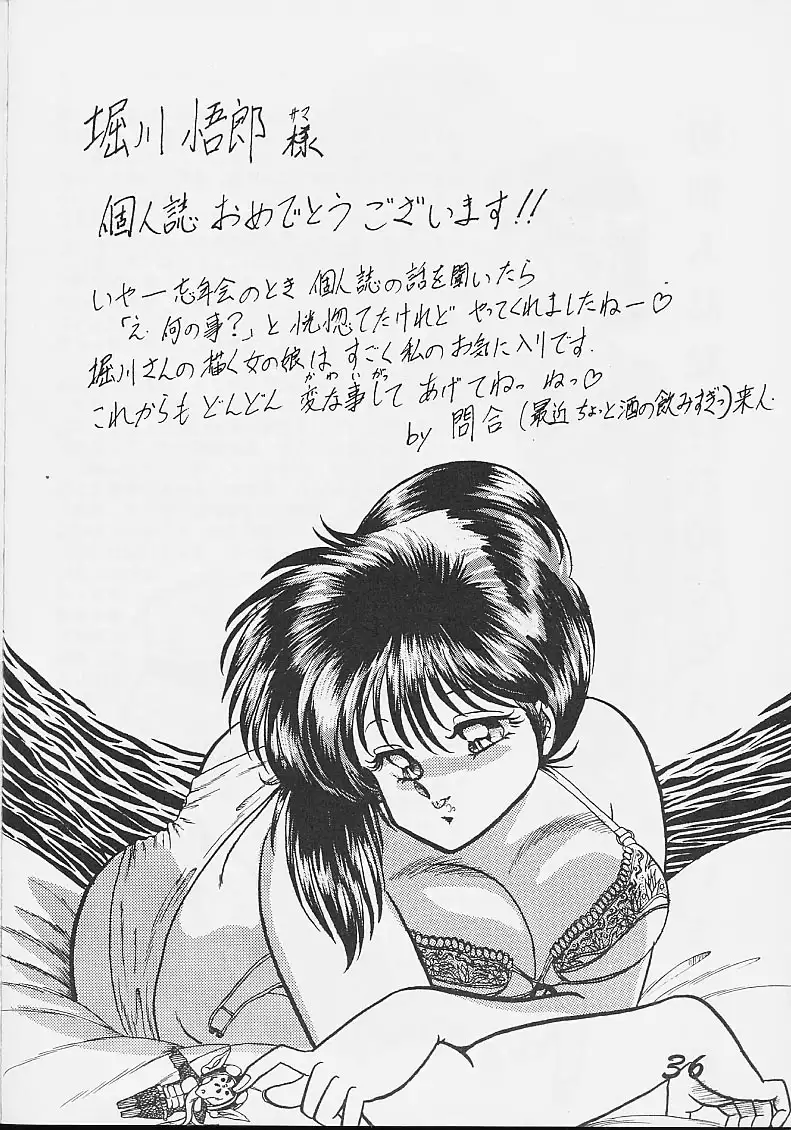 堀川 悟郎 様
サマ
個人誌 おめでとうございます!!
いやー忘年会のとき 個人誌の話を聞いたら
「え、何の事?」と 恍惚てたけれど やってくれましたねー♡
堀川さんの描く女の娘は すごく私のお気に入りです.
かわいがっ
これからも どんどん 変な事して あげてねっ ねっ♡
by 問合 (最近 ちょっと酒の飲みすぎっ) 来人
36